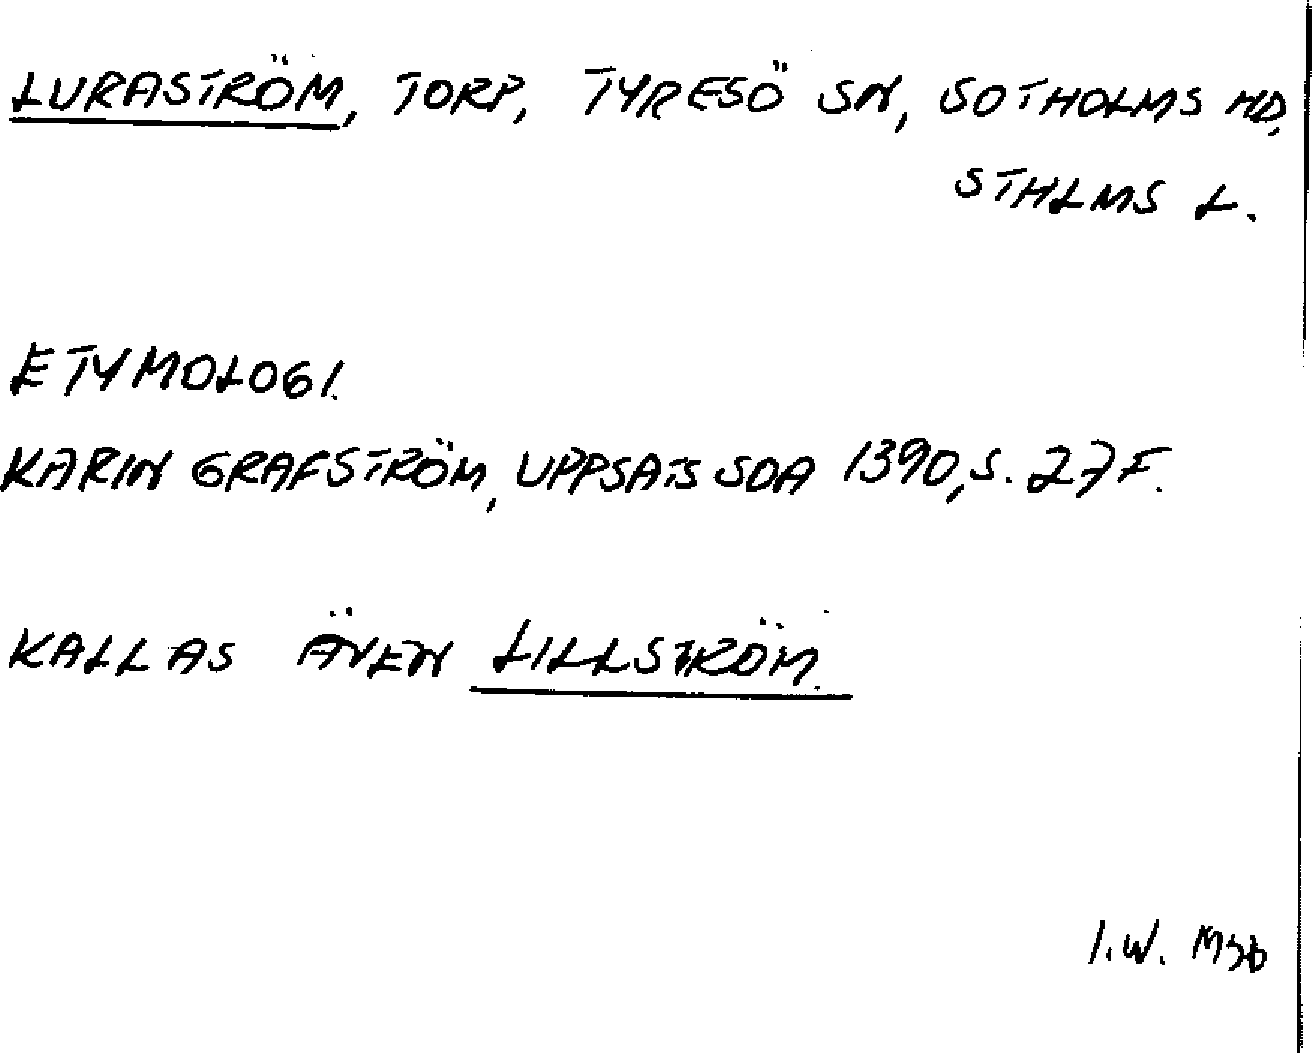 LURASTRÖM, TORP, TYRESÖ SN, SOTHOLMS HD,
STHLMS L.
ETYMOLOGI.
KARIN GRAFSTRÖM, UPPSATS SOA 1390, S. 27 F.
KALLAS ÄVEN LILLSTRÖM.
I.W.